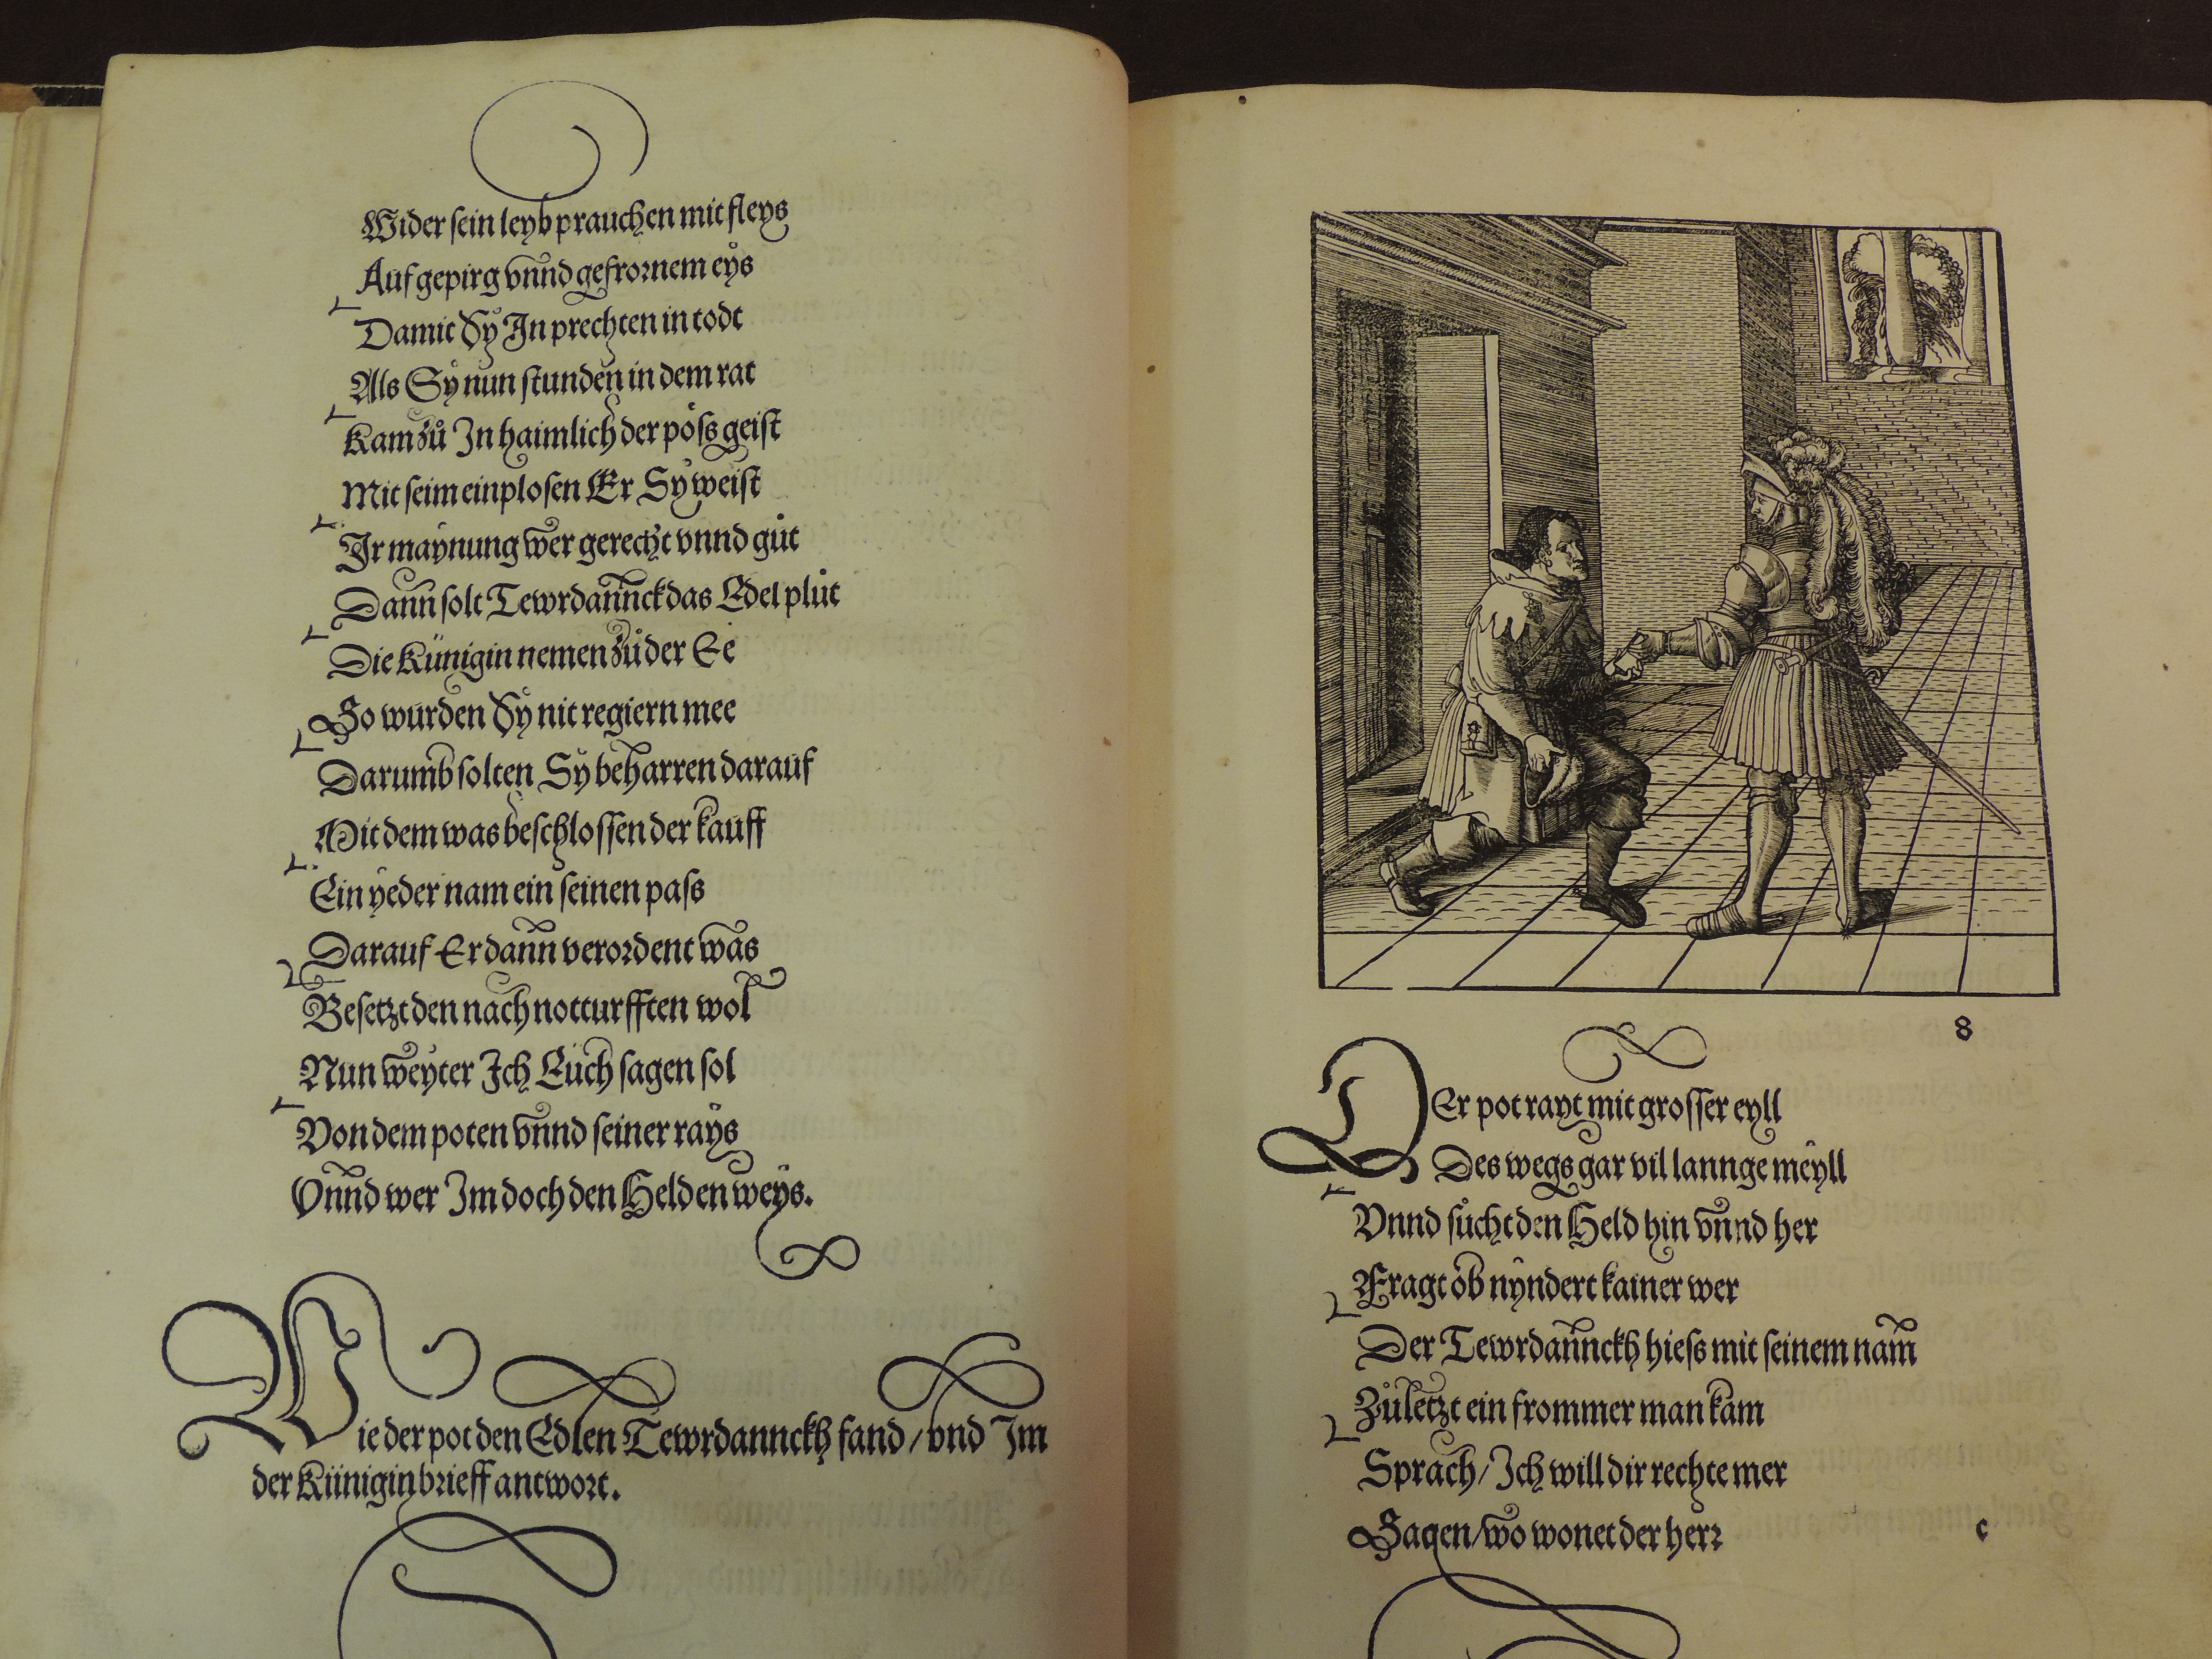 Wider sein leyb prauchen mit fleys
Auf gepirg vnnd gefrornem eys
Damit Sy Jn prechten in todt
Als Sy nun stunden in dem rat
Kam zů Jn haimlich der pöss geist
Mit seim einplosen Er Sy weist
Jr maynung wer gerecht vnnd gůt
Dann solt Tewrdannck das Edel plůt
Die Künigin nemen zů der Ee
So wurden Sy nit regiern mee
Darumb solten Sy beharren darauf
Mit dem was beschlossen der kauff
Ein yeder nam ein seinen pass
Darauf Er dann verordent was
Besetzt den nach notturfften wol
Nun weyter Jch Euch sagen sol
Von dem poten vnnd seiner rays
Vnnd wer Jm doch den Helden weys.
Wie der pot den Edlen Tewrdannckh fand / vnd Jm
der Küniginbrieff antwort.
8
DEr pot rayt mit grosser eyll
Des wegs gar vil lannge meyll
Vnnd sůcht den Held hin vnnd her
Fragt ob nyndert kainer wer
Der Tewrdannckh hiess mit seinem nam
Zůletzt ein frommer man kam
Sprach / Jch will dir rechte mer
Sagen / wo wonet der herr
c